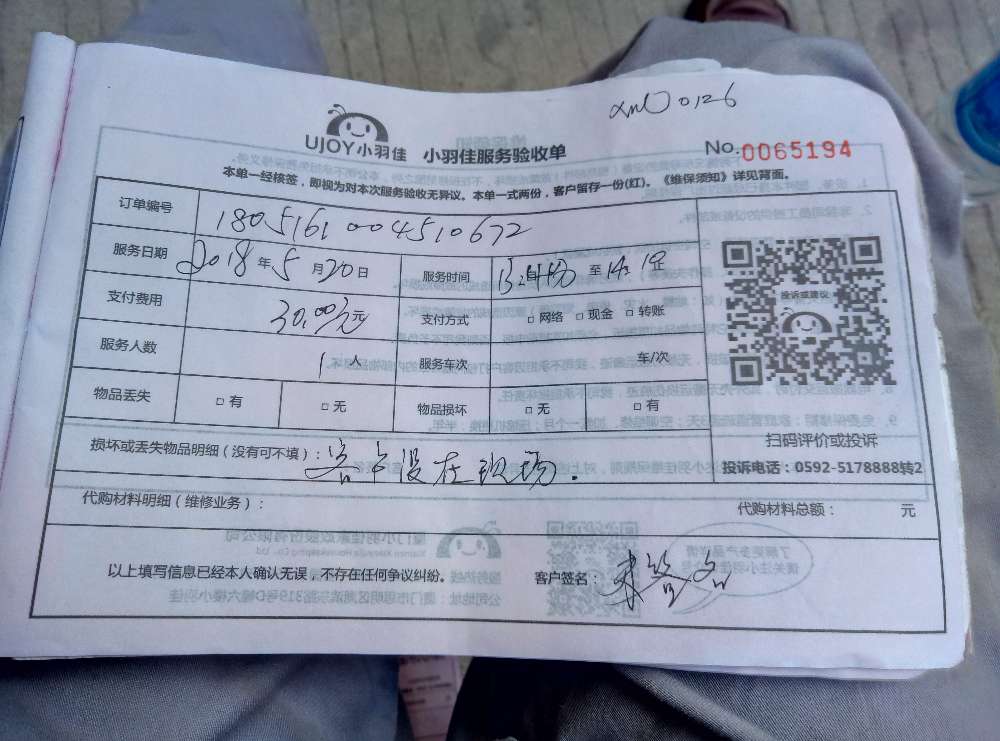 xmU0126
UJOY小羽佳 小羽佳服务验收单 No.0065194
本单一经核签，即视为对本次服务验收无异议。本单一式两份，客户留存一份(红)。《维保须知》详见背面。
订单编号 1805161004510672
服务日期 2018年5月20日 服务时间 至
支付费用 30.00元 支付方式 □网络 □现金 □转账
服务人数 1人 服务车次 车/次
物品丢失 □有 □无 物品损坏 □无 □有
投诉或建议
扫码评价或投诉
投诉电话：0592-5178888转2
损坏或丢失物品明细（没有可不填）：客户没在现场.
代购材料明细（维修业务）： 代购材料总额： 元
以上填写信息已经本人确认无误，不存在任何争议纠纷。 客户签名：未签名